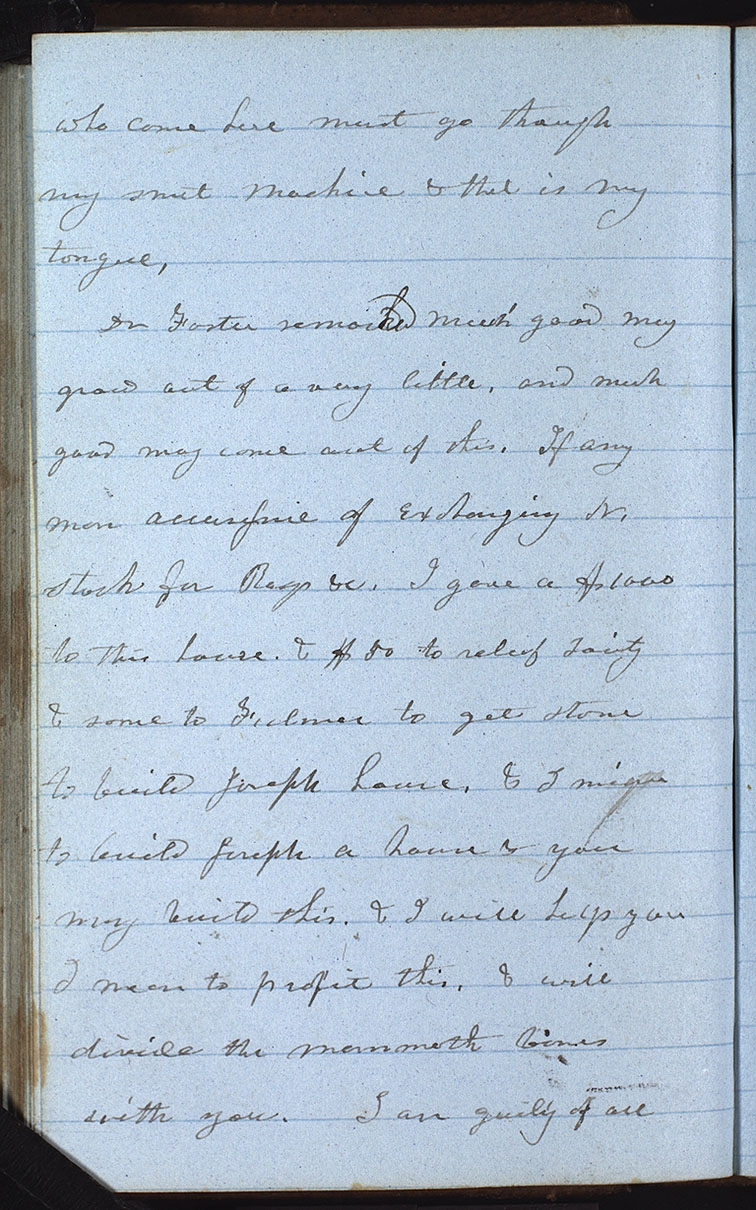 who come here must go though
my smut machine & that is my
tongue,
Dr Foster remarked much good may
grow out of a very little, and much
good may come out of this. If any
man accuses me of Exchanging N.
stock for Rags &c. I gave a $1000
to this house. & $50 to releif Soiety
& some to Fulmer to get stone
to build Joseph house, & I mean
to build Joseph a house & you
may build this. & I will help you
I mean to profit this. & will
divide the mammoth bones
with you. I am guilty of all